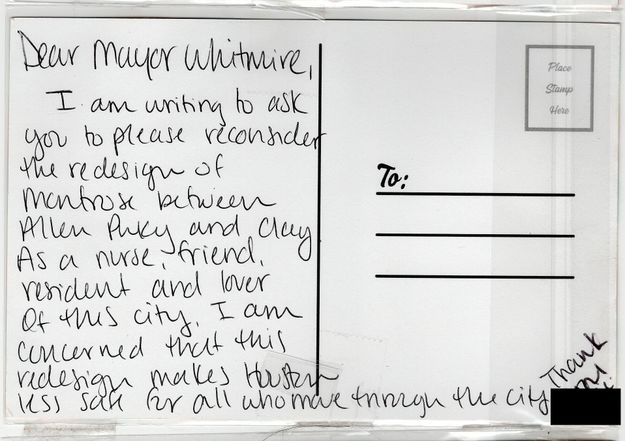 Dear Mayor Whitmire,
I am writing to ask
you to please reconsider
the redesign of
Montrose between
Allen Pkwy and Clay
As a nurse, friend,
resident and lover
of this city, I am
concerned that this
redesign makes Houston
less safe for all who move through the city
Thank
Place
Stamp
Here
To: